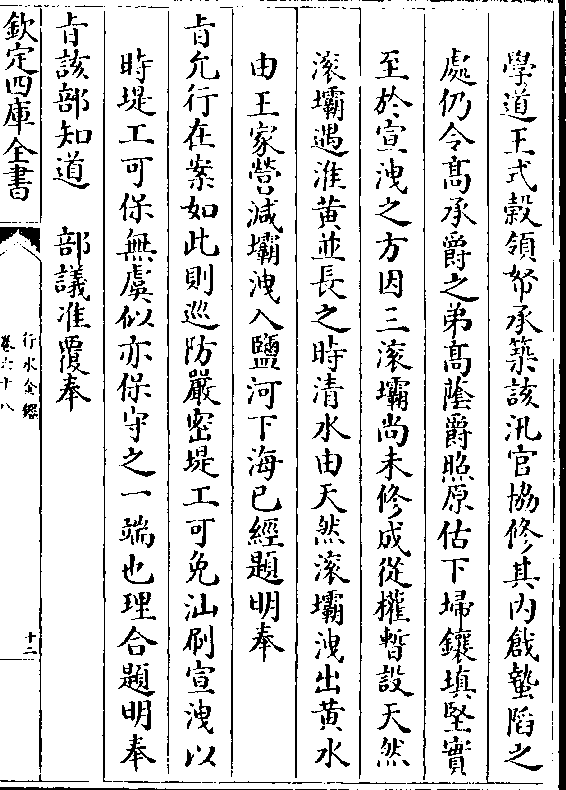 學道王式穀領帑承築該汛官協修其内戧蟄䧟之
處仍令髙承爵之弟髙䕃爵照原估下埽鑲填堅實
至於宣洩之方因三滚壩尚未修成從權暫設天然
滚壩遇淮黄並長之時清水由天然滚壩洩出黄水
由王家營減壩洩入鹽河下海已經題明奉
㫖允行在案如此則巡防嚴密堤工可免汕刷宣洩以
時堤工可保無虞似亦保守之一端也理合題明奉
㫖該部知道　部議准覆奉
欽定四庫全書
行水金鑑
卷六十八
十二